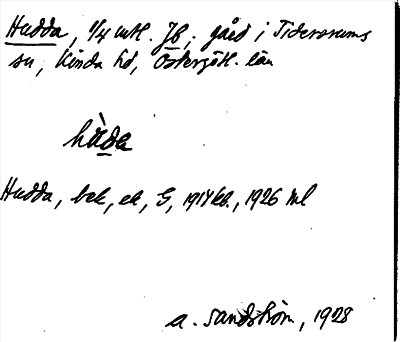 Hudda, 1/4 mtl. Jb, gård i Tidersrums
sn, Kinda hd, Östergötl. län
hàda
Hudda, bek, ek, G, 1917 kb., 1926 ml
A. Sandström, 1928